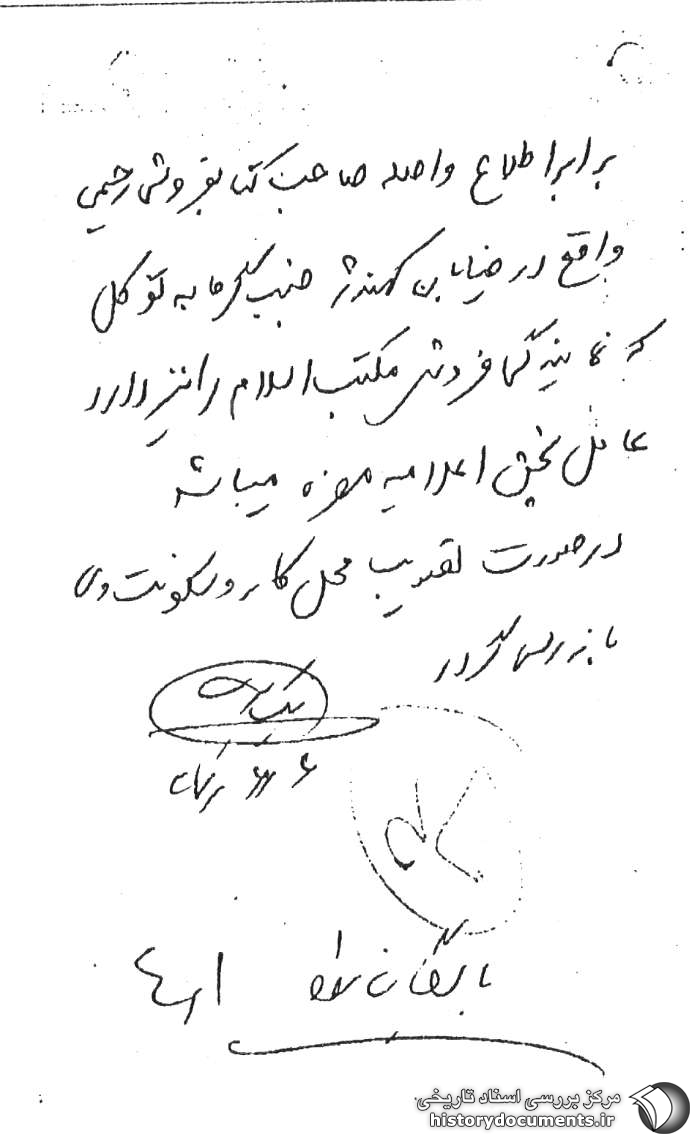 برابر اطلاع واصله صاحب کتابفروشی رحیمی
واقع در خیابان کهندژ جنب گرمابه توکل
که نمایندگی فروش مکتب اسلام را نیز دارد
عامل پخش اعلامیه مضره میباشد
در صورت تصویب محل کار و سکونت وی
بازرسی گردد
بایگانی شود
مرکز بررسی اسناد تاریخی
historydocuments.ir